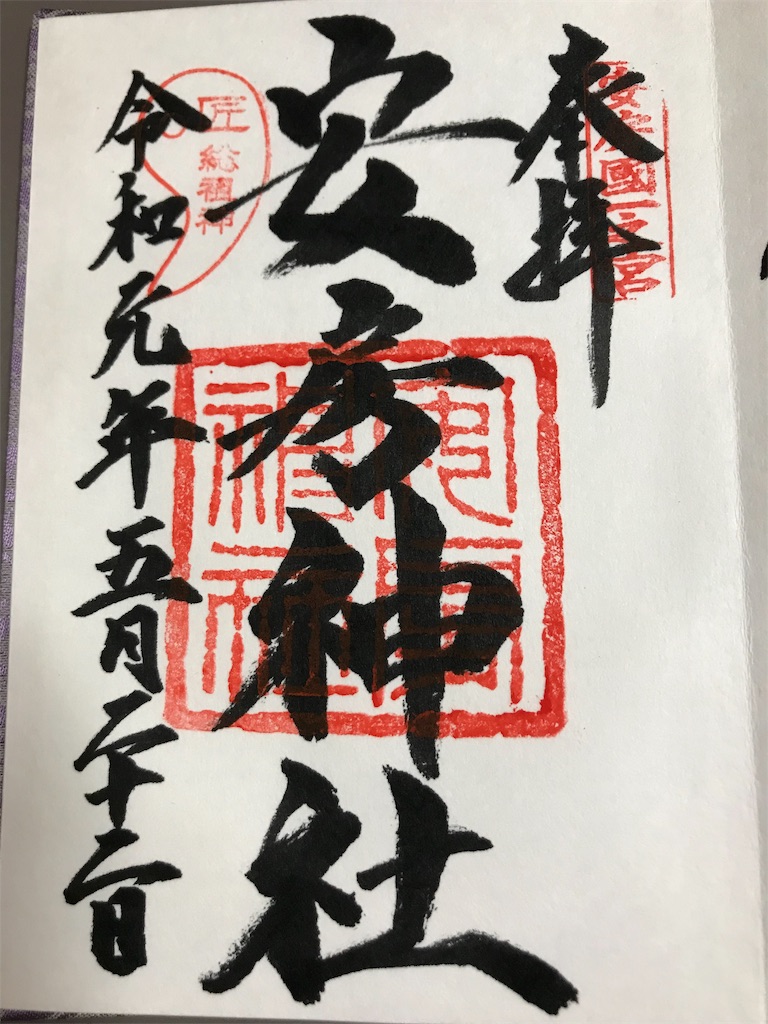 奉拝
安房國一之宮
安房神社
安房
神社
匠
総祖神
令和元年五月二十二日